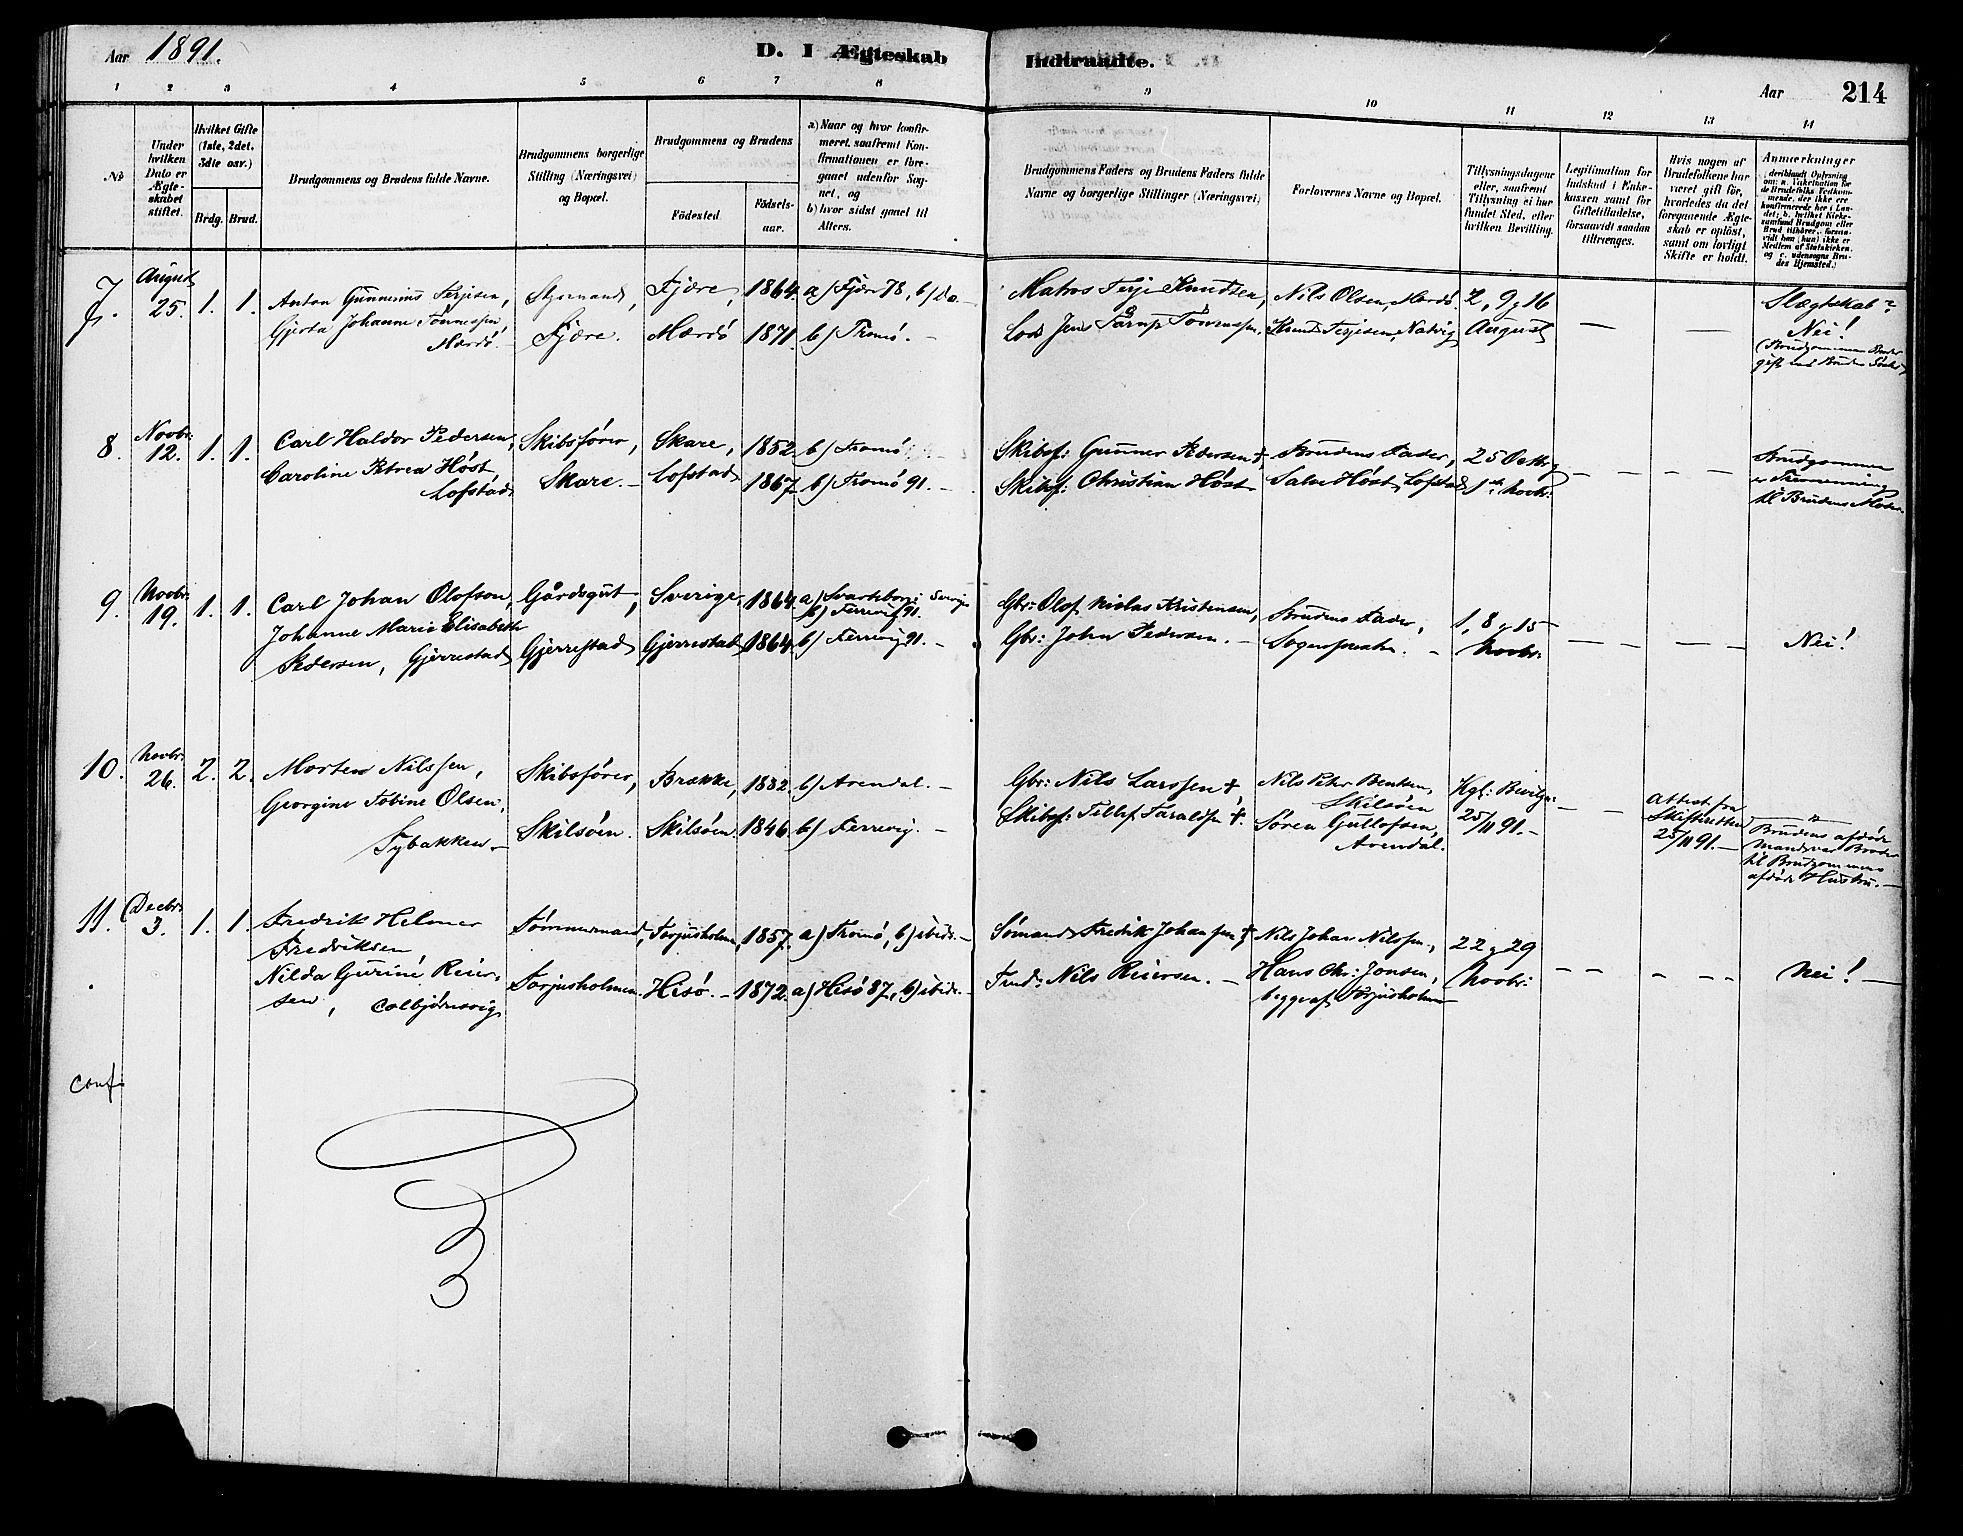 Aar 1891. D. I Ægteskab Indtraadte. Aar 214
1 2 3 4 5 6 7 8 9 10 11 12 13 14
No
Under hvilken Dato er Ægteskabet stiftet.
Hvilket Gifte (1ste, 2det, 3die osv.)
Brdg. Brud.
Brudgommens og Brudens fulde Navne.
Brudgommens borgerlige Stilling (Næringsvei) og Bopæl.
Brudgommens og Brudens
Fødested. Fødselsaar.
a) Naar og hvor konfirmeret, saafremt Konfirmationen er foregaaet udenfor Sognet, og
b) hvor sidst gaaet til Alters.
Brudgommens Faders og Brudens Faders fulde Navne og borgerlige Stillinger (Næringsvei)
Forlovernes Navne og Bopæl.
Tillysningsdagene eller, saafremt Tillysning ei har fundet Sted, efter hvilken Bevilling.
Legitimation for Indskud i Enkekassen samt for Giftetilladelse, forsaavidt saadan tiltrænges.
Hvis nogen af Brudefolkene har været gift før, hvorledes da det foregaaende Ægteskab er opløst, samt om lovligt Skifte er holdt.
Anmærkninger
7. August 25. 1. 1. Anton Gunnerius Terjesen, Styrmand, Fjære, 1864. a) Fjære 78, b) Do — Matros Terje Knudsen, Nils Olsen, Mærdø. 2, 9 og 16 Slægtskab?
Gjerta Johanne Tønnessen, Mærdø. Fjære. Mærdø 1871. b) Tromø. — Lods Jens Tønnessen. Knud Terjesen, Natvig August — — Nei!
(Brudgommens Broder
gift med Brudens Søster)
8. Novbr: 12. 1. 1. Carl Haldor Pedersen, Skibsfører, Skare, 1852. b) Tromø Skibsf: Gunner Pedersen †, Brudens Fader, 25 Octbr og Brudgommen
Caroline Petrea Høst Lofstad Skare. — Lofstad 1867. b) Tromø 91. — Skibsf: Christian Høst Salve Høst, Lofstad 1ste Novbr: — — — — er Fremenning
til Brudens Moder.
9. Novbr: 19. 1. 1. Carl Johan Olofson, Gårdsgut, Sverige, 1864. a) Svarteborg: Sverige b) Færvig 91. Gbr: Olof Niclas Kristensen, Brudens Fader, 1, 8 og 15
Johanne Marie Elisabeth Pedersen, Gjerrestad Gjerrestad Gjerrestad 1864. b) Færvig 91. — Gbr: John Pedersen. — Sognepresten. — Novbr: — — — — Nei!
10. Novbr: 26. 2. 2. Morten Nilssen, Skibsfører, Brække, 1832. b) Arendal. — Gbr: Nils Larssen †, Nils Peter Bentsen, Skilsøen Kgl: Bevilgn:
Georgine Tobine Olsen, Tybakken. — Skilsøen. Skilsøen. 1846. b) Færrvig. — Skibsf: Tellef Taraldsen †. Søren Gullofsen, Arendal. 25/11 91. — — — Attest fra Skifteretten 25/11 91. —
Brudens afdøde
Mand var Broder
til Brudgommens
afdøde Hustru. —
11. Decbr: 3. 1. 1. Fredrik Helmer Fredriksen Tømmermand, Torjusholmen, 1857. a) Tromø, b) ibid: — Sømand Fredrik Johansen †, Nils Johan Nilssen, 22 og 29
Nilda Gurine Reiersen, Colbjørnsvig Torjusholmen. Hisø. — 1872. a) Hisø 87, b) ibid: — Nils Reiersen. — Hans Chr: Jonsen, begge af Torjusholmen Novbr: — — — — Nei! —
Conf.